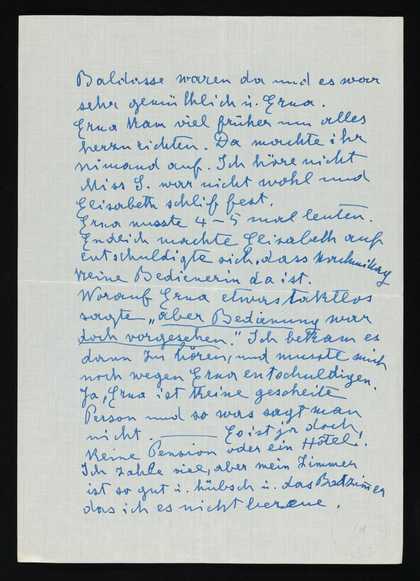 Baldasse waren da und es war
sehr gemütlich u. Erna.
Erna kam viel früher um alles
herzurichten. Da machte ihr
niemand auf. Ich höre nicht
Miss S. war nicht wohl und
Elisabeth schlief fest.
Erna musste 4-5 mal leuten.
Endlich machte Elisabeth auf
entschuldigte sich, dass nachmittag
keine Bedienerin da ist.
Worauf Erna etwas taktlos
sagte „aber Bedienung war
doch vorgesehen." Ich bekam es
dann zu hören, und musste mich
noch wegen Erna entschuldigen.
Ja, Erna ist keine gescheite
Person und so was sagt man
nicht. — Es ist ja doch
keine Pension oder ein Hotel!
Ich zahle viel, aber mein Zimmer
ist so gut u. hübsch u. das Badzimmer
das ich es nicht bereue.